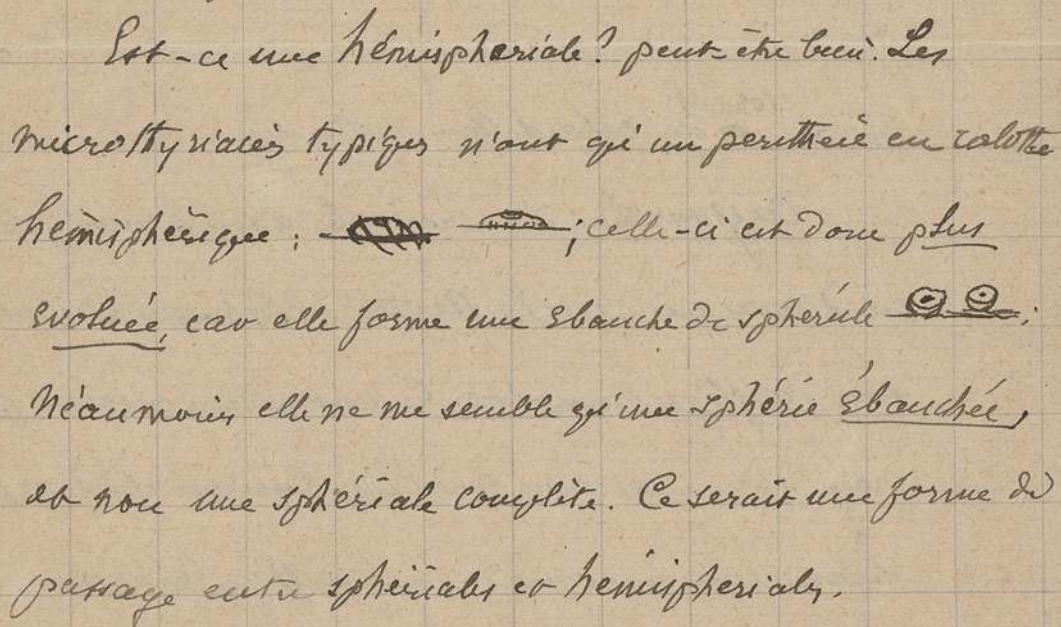 Est-ce une hémisphériale? peut-être bien. Les
microthyriacées typiques n'ont qu'un périthèce en calotte
hémisphérique : ; celle-ci est donc plus
évoluée, car elle forme une ébauche de sphérule ;
Néanmoins elle ne me semble qu'une sphérie ébauchée,
et non une sphériale complète. Ce serait une forme de
passage entre sphériales et hémisphériales.